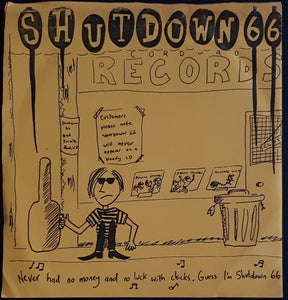 SHUTDOWN 66
CORDURO
RECORDS
Customers
please note
Shutdown 66
will never
appear on a
bloody CD
Never had no money and no luck with chicks. Guess I'm Shutdown 66